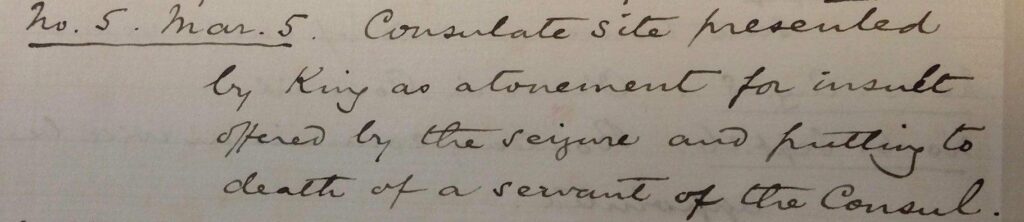 No. 5. Mar. 5. Consulate Site presented
by King as atonement for insult
offered by the seizure and putting to
death of a servant of the Consul.